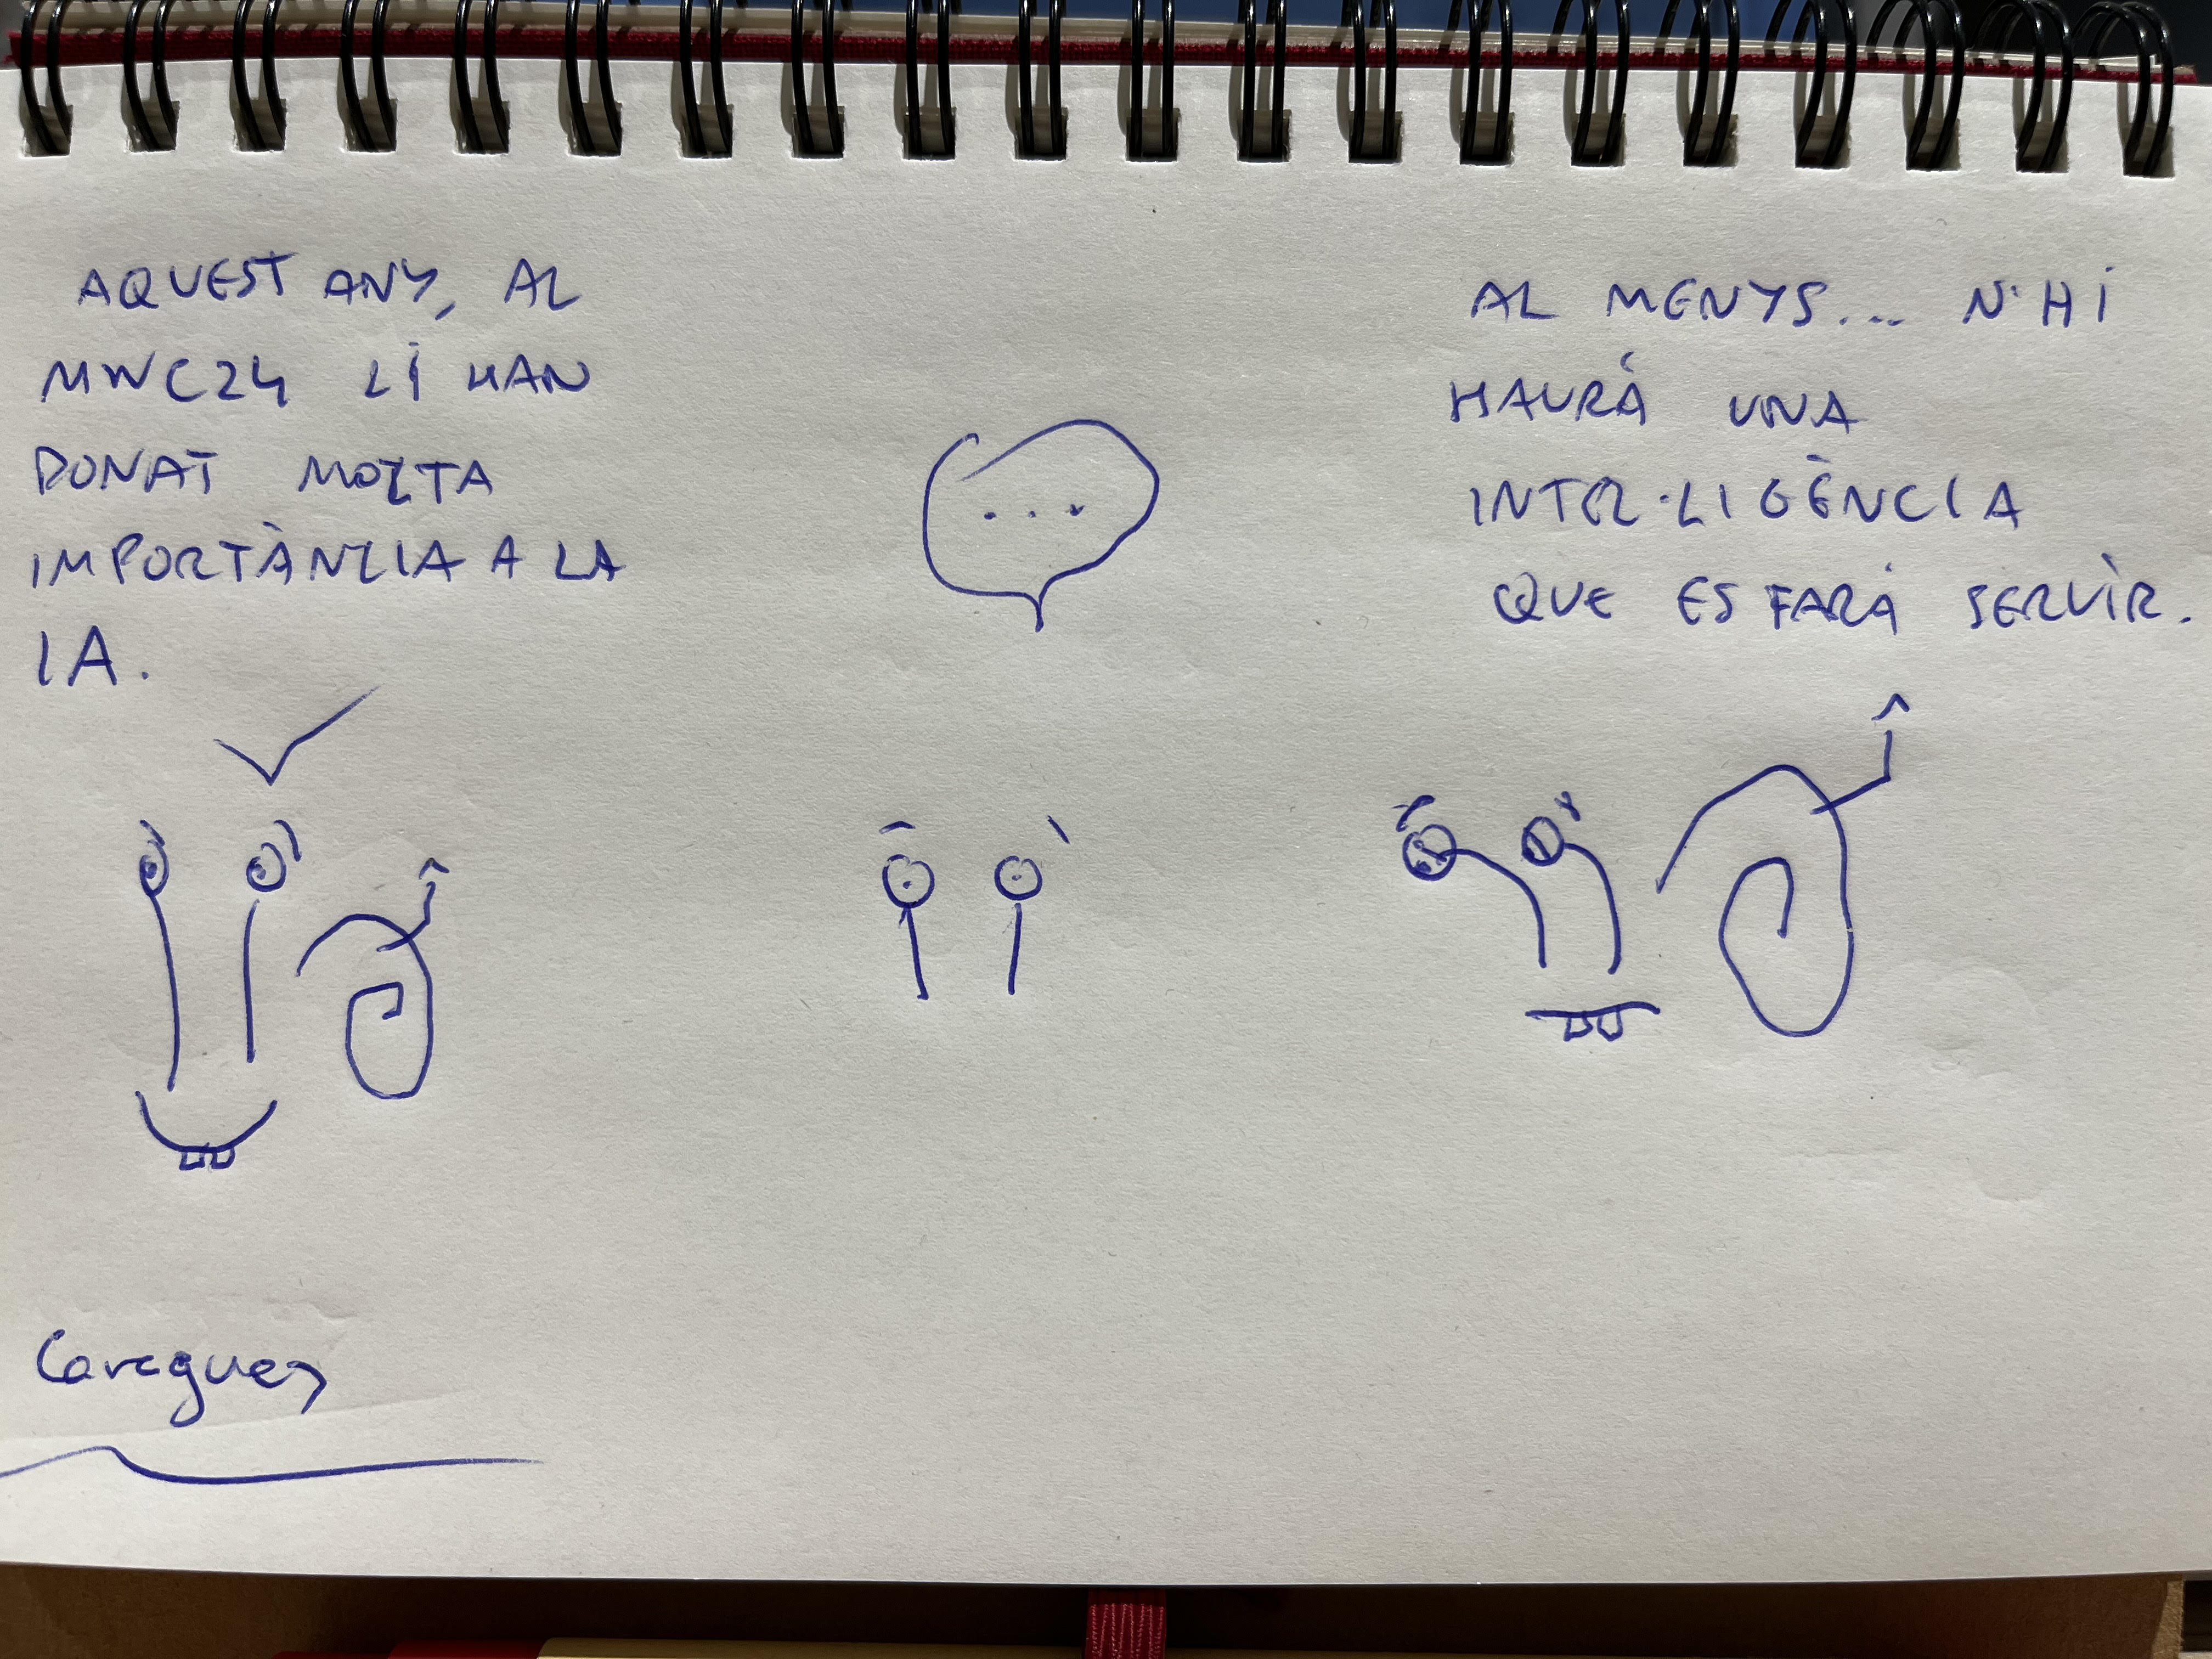 AQUEST ANY, AL
MWC24 LI HAN
DONAT MOLTA
IMPORTÀNCIA A LA
IA.
...
AL MENYS... N'HI
HAURÁ UNA
INTEL·LIGÈNCIA
QUE ES FARÁ SERVÌR.